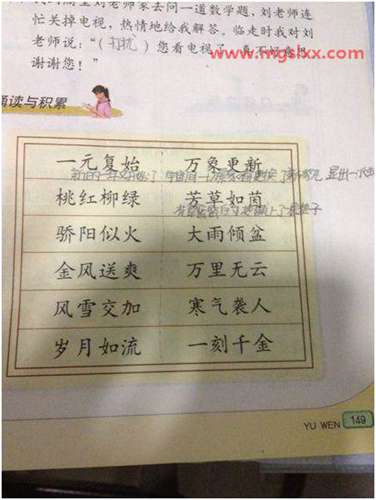 刘老师家去问一道数学题，刘老师连
忙关掉电视，热情地给我解答。临走时我对刘
老师说：“（打扰）您看电视了，真不好意思，
谢谢您！”
www.mgslxx.com
诵读与积累
一元复始 万象更新
桃红柳绿 芳草如茵
骄阳似火 大雨倾盆
金风送爽 万里无云
风雪交加 寒气袭人
岁月如流 一刻千金
YU WEN 149